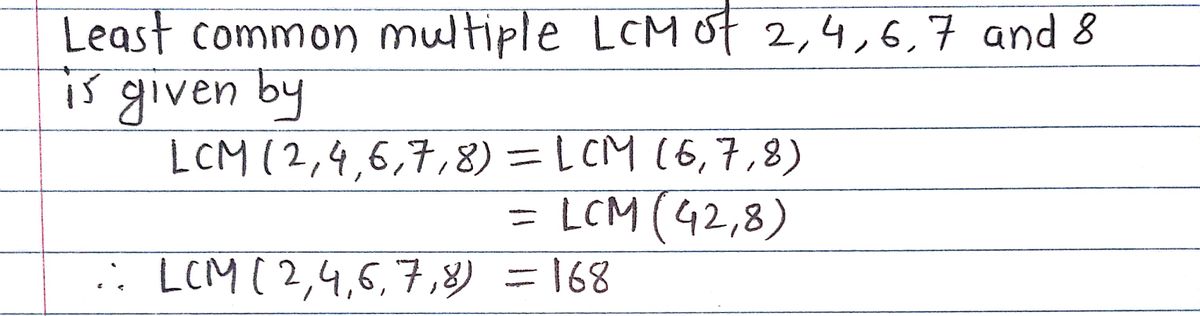 Least common multiple LCM of 2,4,6,7 and 8
is given by
LCM (2,4,6,7,8) = LCM (6,7,8)
= LCM (42,8)
∴ LCM (2,4,6,7,8) = 168